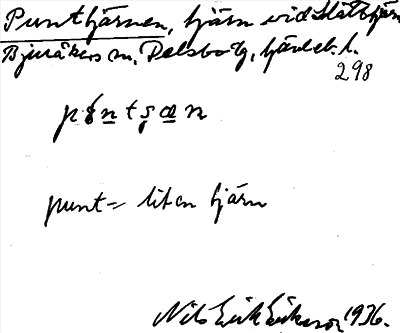 Punttjärnen, tjärn vid Slåttetjärn
Bjuråkers sn, Delsbo tg, Gävleb. l.
298
punt = liten tjärn
Nils Erik Eriksson 1936.